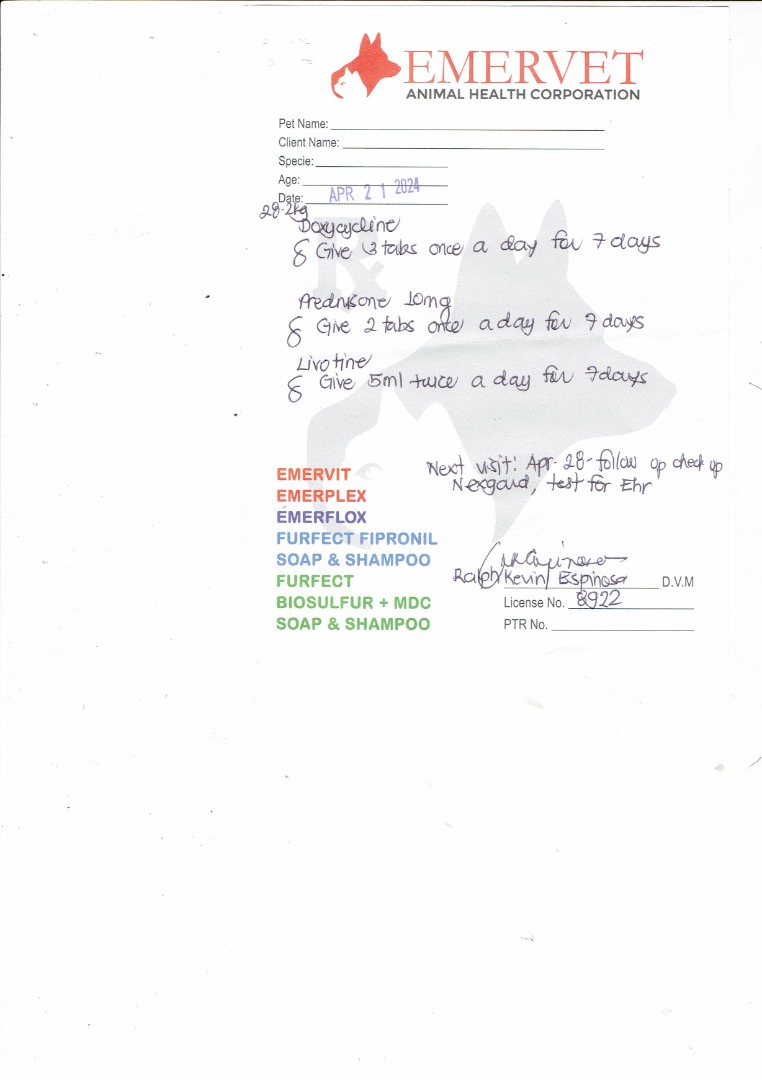 EMERVET
ANIMAL HEALTH CORPORATION
Pet Name:
Client Name:
Specie:
Age:
Date: APR 21 2024
28.2kg
Doxycycline
Give 3 tabs once a day for 7 days
Prednisone 10mg
Give 2 tabs once a day for 7 days
Livotine
Give 5ml twice a day for 7days
Next visit: Apr. 28 - follow up check up
Nexgard, test for Ehr
EMERVIT
EMERPLEX
EMERFLOX
FURFECT FIPRONIL
SOAP & SHAMPOO
FURFECT
BIOSULFUR + MDC
SOAP & SHAMPOO
Ralph Kevin Espinosa D.V.M
License No. 8922
PTR No.